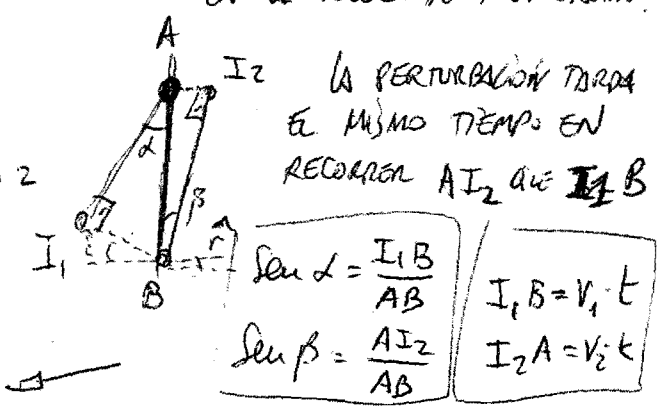 A
I2
LA PERTURBACIÓN TARDA
EL MISMO TIEMPO EN
RECORRER AI2 QUE I1 B
α
β
2
I1
i
r
B
Sen α = I1B / AB
Sen β = AI2 / AB
I1B = V1·t
I2A = V2·t